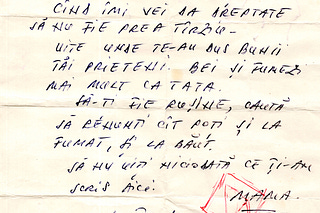 CÎND ÎMI VEI DA DREPTATE
SĂ NU FIE PREA TÎRZIU.
UITE UNDE TE-AU DUS BUNII
TĂI PRIETENI. BEI ȘI FUMEZI
MAI MULT CA TATA.
SĂ-ȚI FIE RUȘINE, CAUTĂ
SĂ RENUNȚI CÎT POȚI ȘI LA
FUMAT, ȘI LA BĂUT.
SĂ NU UIȚI NICIODATĂ CE ȚI-AM
SCRIS AICI.
MAMA.